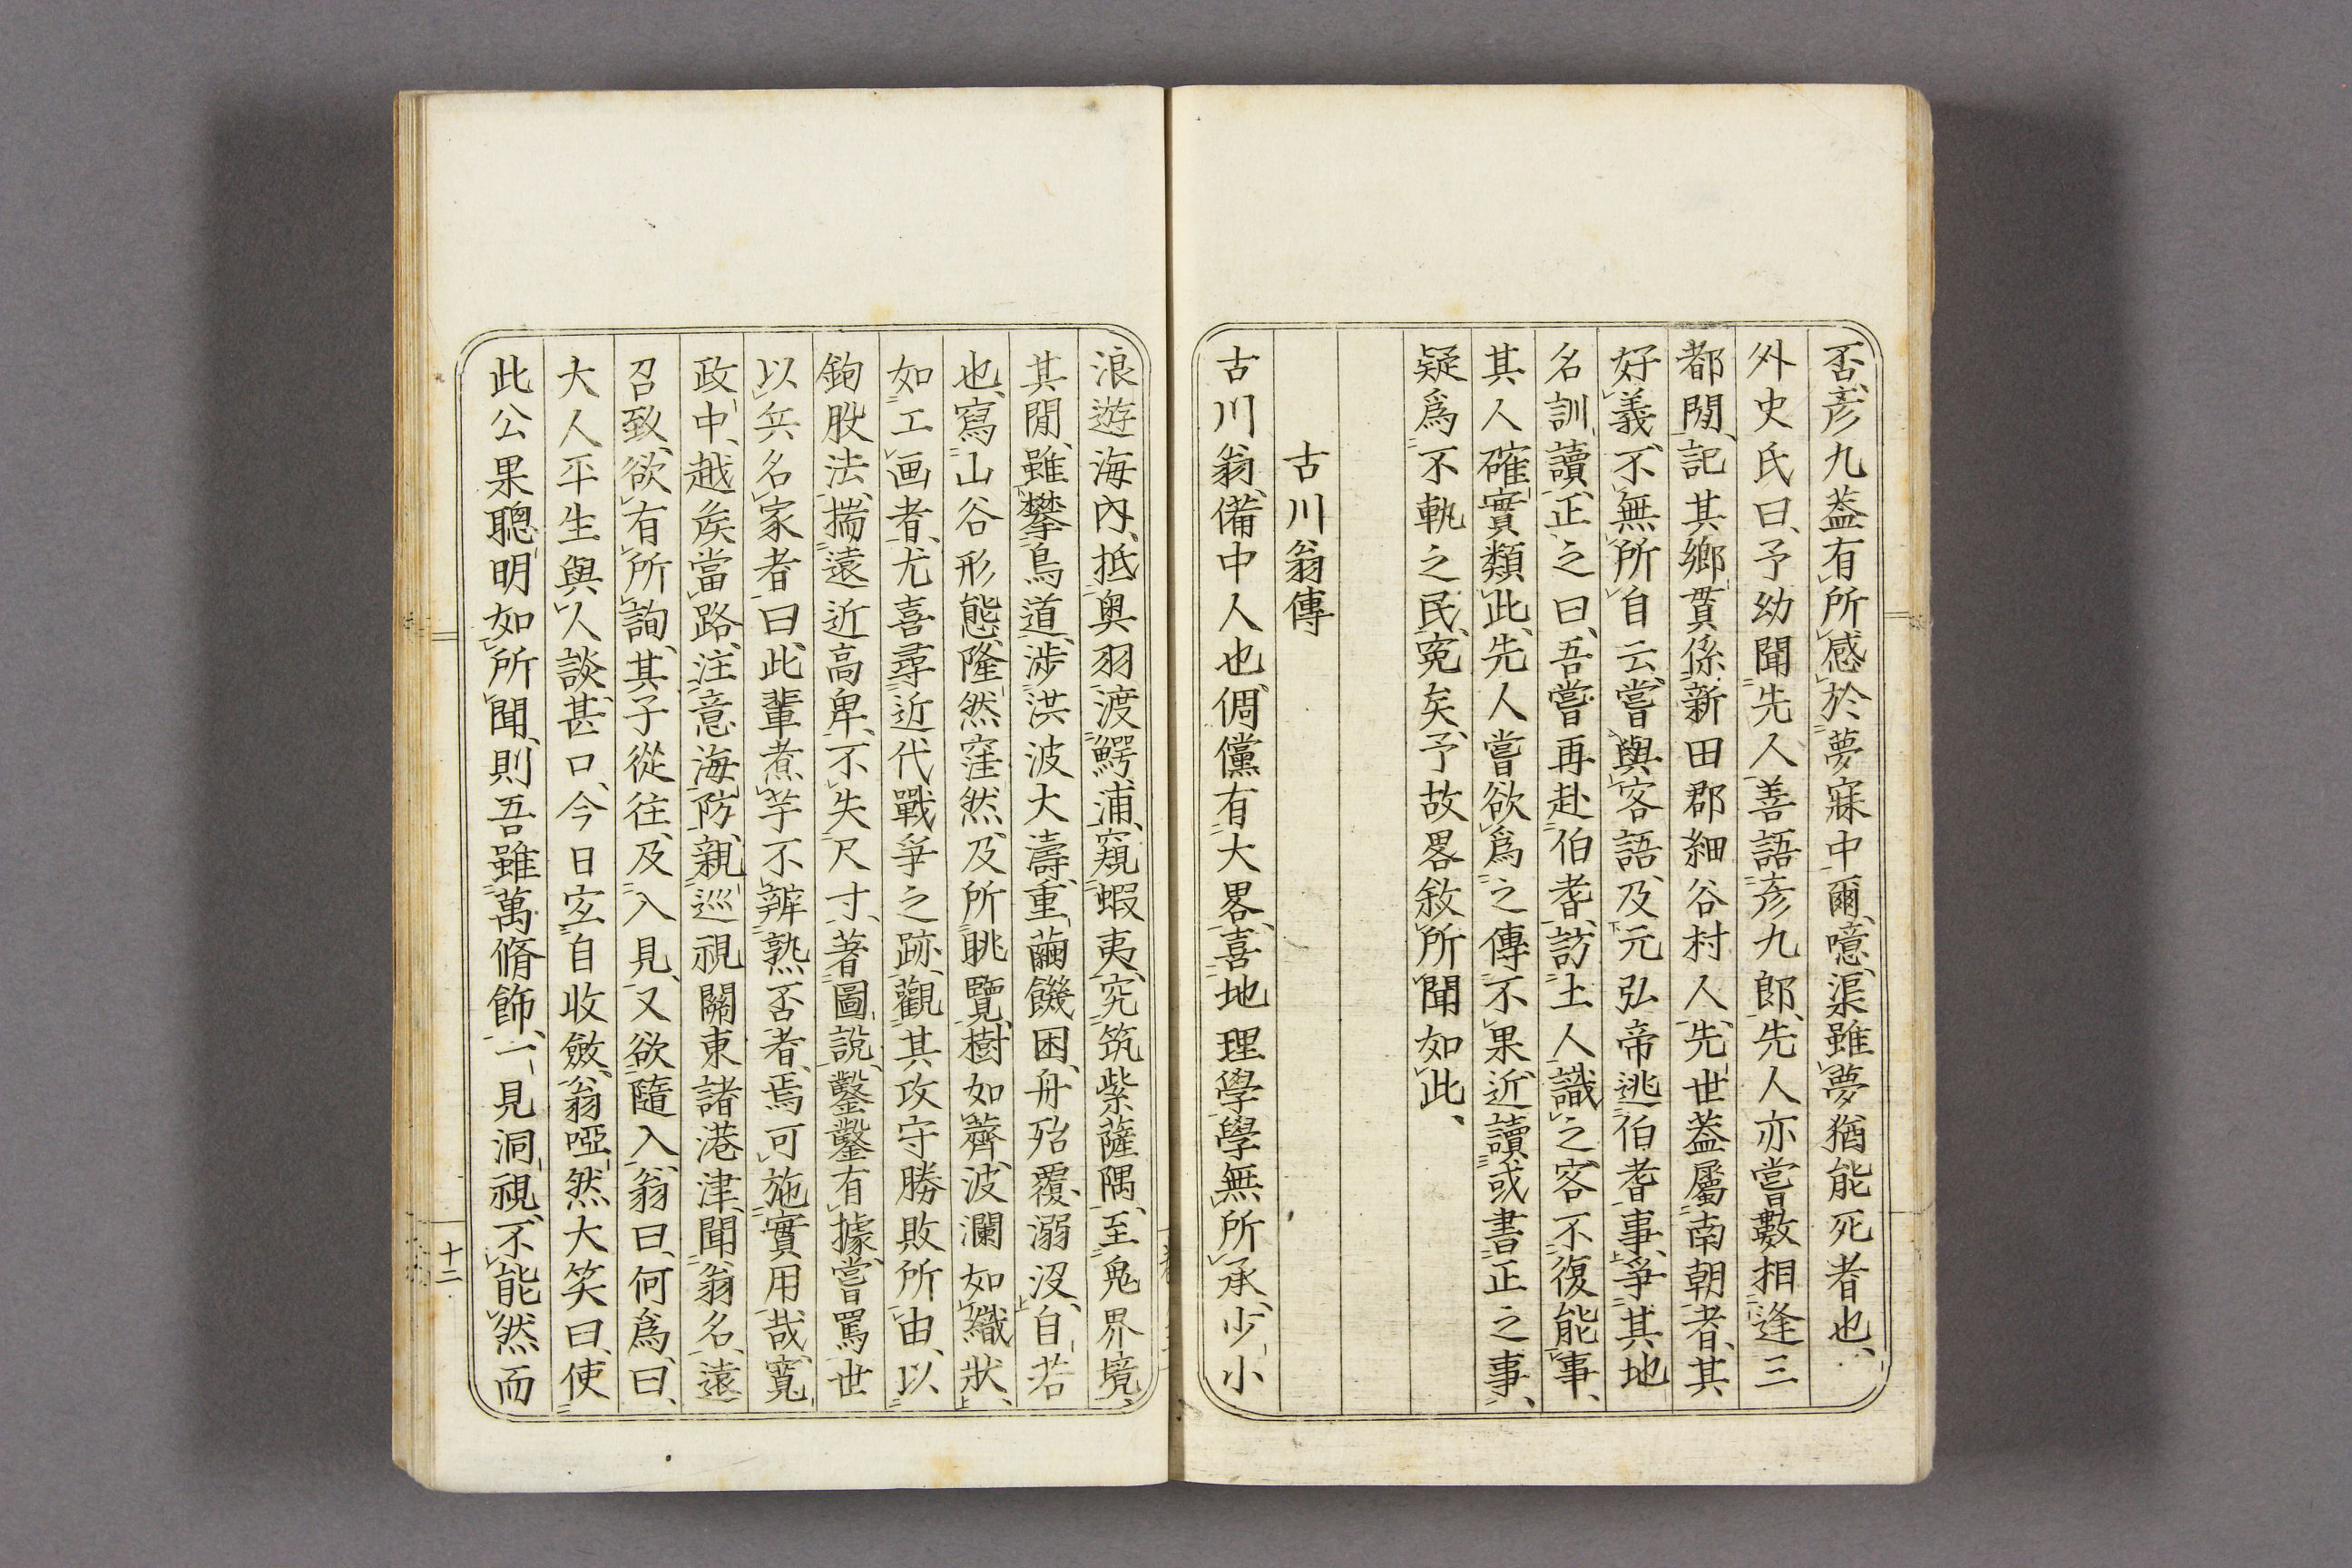 否、彦九葢有所感於夢寐中爾、噫、渠雖夢猶能死者也、
外史氏曰、予幼聞先人善語彦九郎、先人亦嘗數相逢三
都閒、記其鄉貫係新田郡細谷村人、先世葢屬南朝者、其
好義、不無所自云、嘗與客語、及元弘帝逃伯耆事、爭其地
名訓讀、正之曰、吾嘗再赴伯耆、訪土人識之、客不復能事、
其人確實類此、先人嘗欲爲之傳不果、近讀或書正之事、
疑爲不軌之民、冤矣、予故畧敘所聞如此、
古川翁傳
古川翁、備中人也、倜儻有大畧、喜地理學、學無所承、少小
浪遊海內、抵奥羽、渡鰐浦、窺蝦夷、究筑紫薩隅、至鬼界境、
其閒、雖攀鳥道、涉洪波大濤、重繭饑困、舟殆覆、溺沒、自若
也、寫山谷形態、隆然窪然、及所眺覽、樹如薺、波瀾如織狀、
如工画者、尤喜尋近代戰爭之跡、觀其攻守勝敗所由、以
鉤股法、揣遠近高卑、不失尺寸、著圖說、鑿鑿有據、嘗罵世
以兵名家者曰、此輩煮芋不辨熟否者、焉可施實用哉、寬
政中、越矦當路、注意海防、親巡視關東諸港津、聞翁名、遠
召致、欲有所詢、其子從往、及入見、又欲隨入、翁曰、何爲、曰、
大人平生與人談甚口、今日宐自收斂、翁啞然大笑曰、使
此公果聰明如所聞、則吾雖萬脩飾、一見洞視、不能、然而
十二